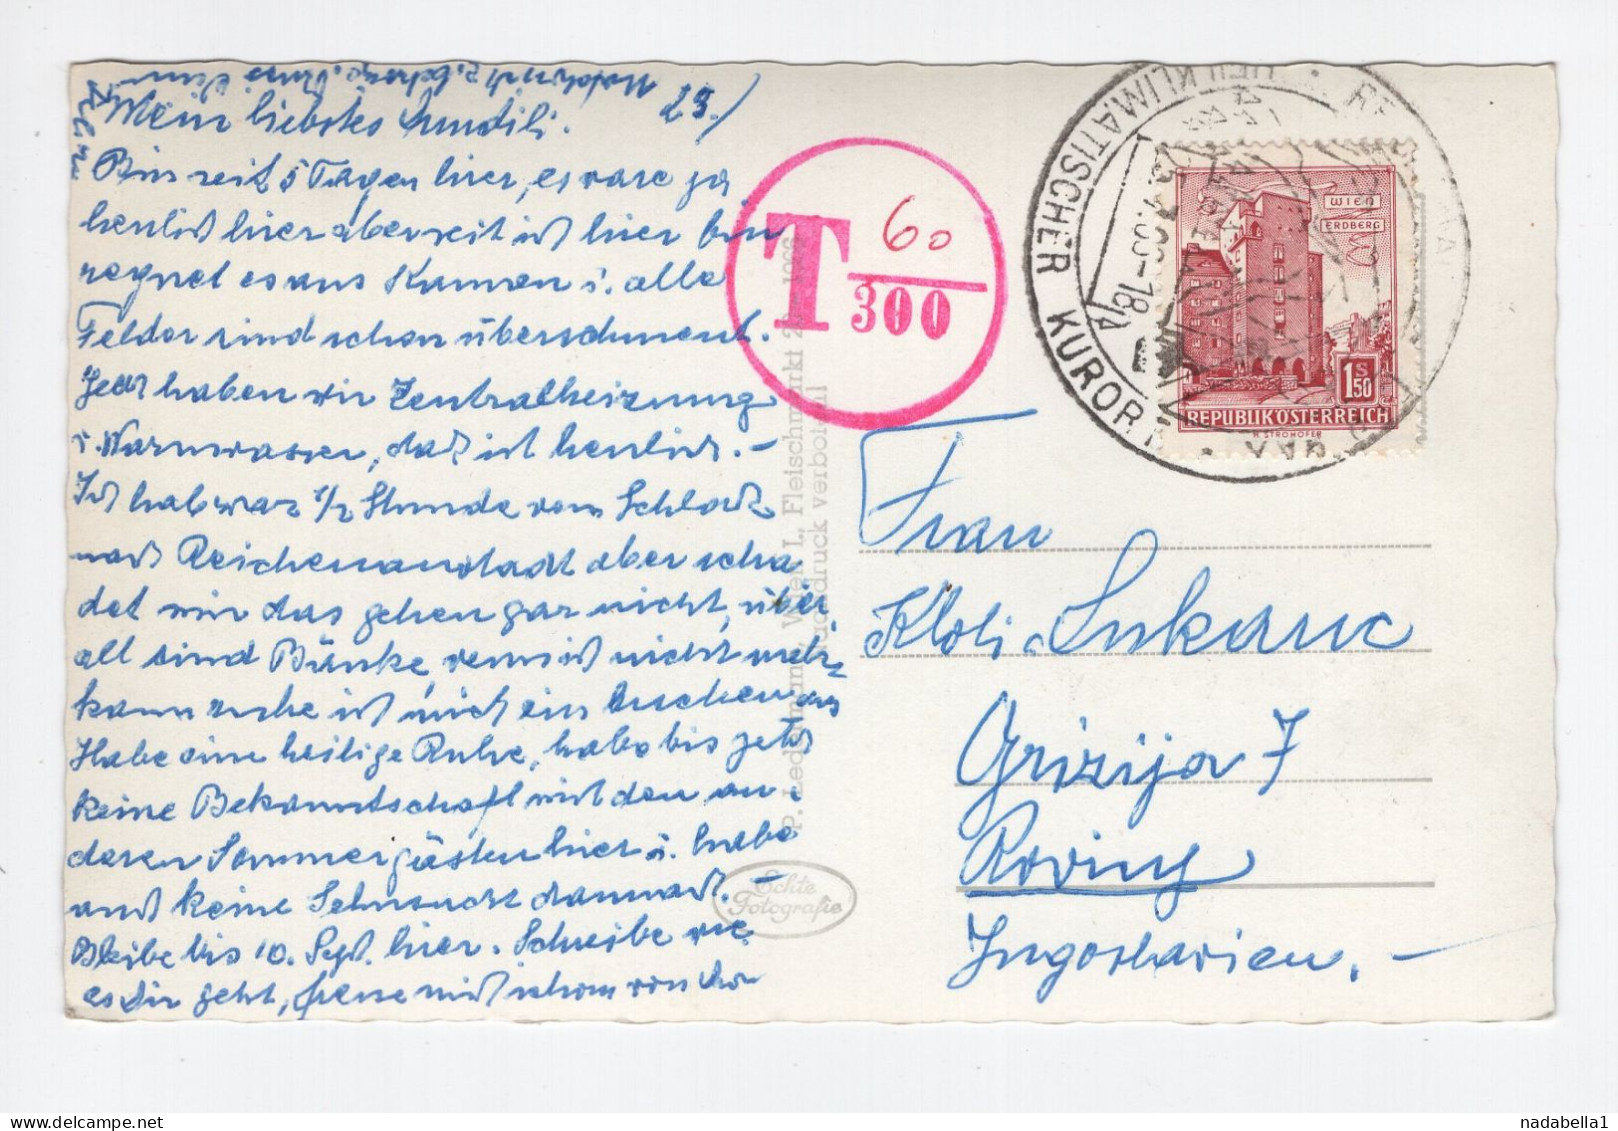 23./
Mein liebstes
Bin seit 5 Tagen hier, es wäre ja
herrlich hier aber seit ich hier bin
regnet es aus Kannen u. alle
Felder sind schon überschwemt.
haben wir Zentralheizung
u. Warmwasser, das ist herrlich. –
Ich hab zwar 1/2 Stunde vom Schloss
nach Reichenau aber scha
det mir das gehen gar nicht, über
all sind Bänke, wenn ich nicht mehr
kann ruhe ich mich ein bischen aus
Habe eine heilige Ruhe, habe bis jetzt
keine Bekanntschaft mit den an-
deren Sommergästen hier u. habe
auch keine Sehnsucht danach. –
Bleibe bis 10. Sept. hier. Schreibe wie
es dir geht, freue mich schon von
T 60
300
HEILKLIMATISCHER KURORT
-18
WIEN
ERDBERG
1 S 50
REPUBLIK ÖSTERREICH
H. STROHOFER
P. Ledermann, Wien I., Fleischmarkt
Nachdruck verboten!
Echte
Fotografie
Frau
Kloti Lukanc
Grizija 7
Rovinj
Jugoslavien. –
nadabella1